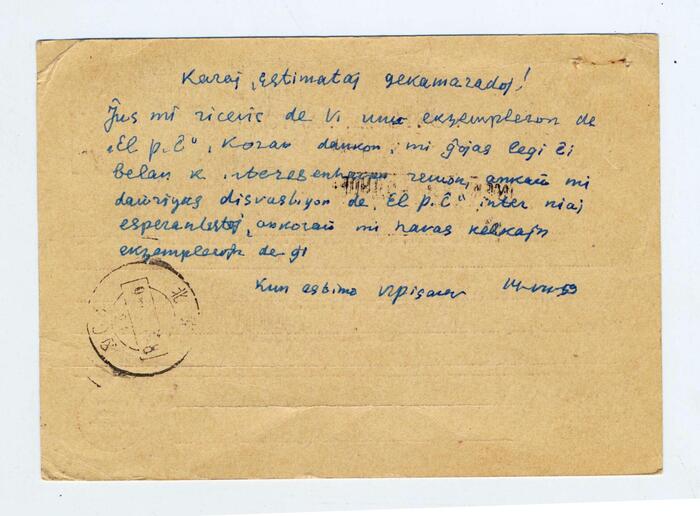 Karaj, estimataj gekamaradoj!
Ĵus mi ricevis de Vi unu ekzempleron de
„El P.Ĉ“, Koran dankon, mi ĝojas legi ĉi
belan k interesenhavan revuon, ankaŭ mi
daŭrigas disvastigon de „El P.Ĉ“ inter niaj
esperantistoj, ankoraŭ mi havas kelkajn
ekzemplerojn de ĝi
Kun estimo 59
北